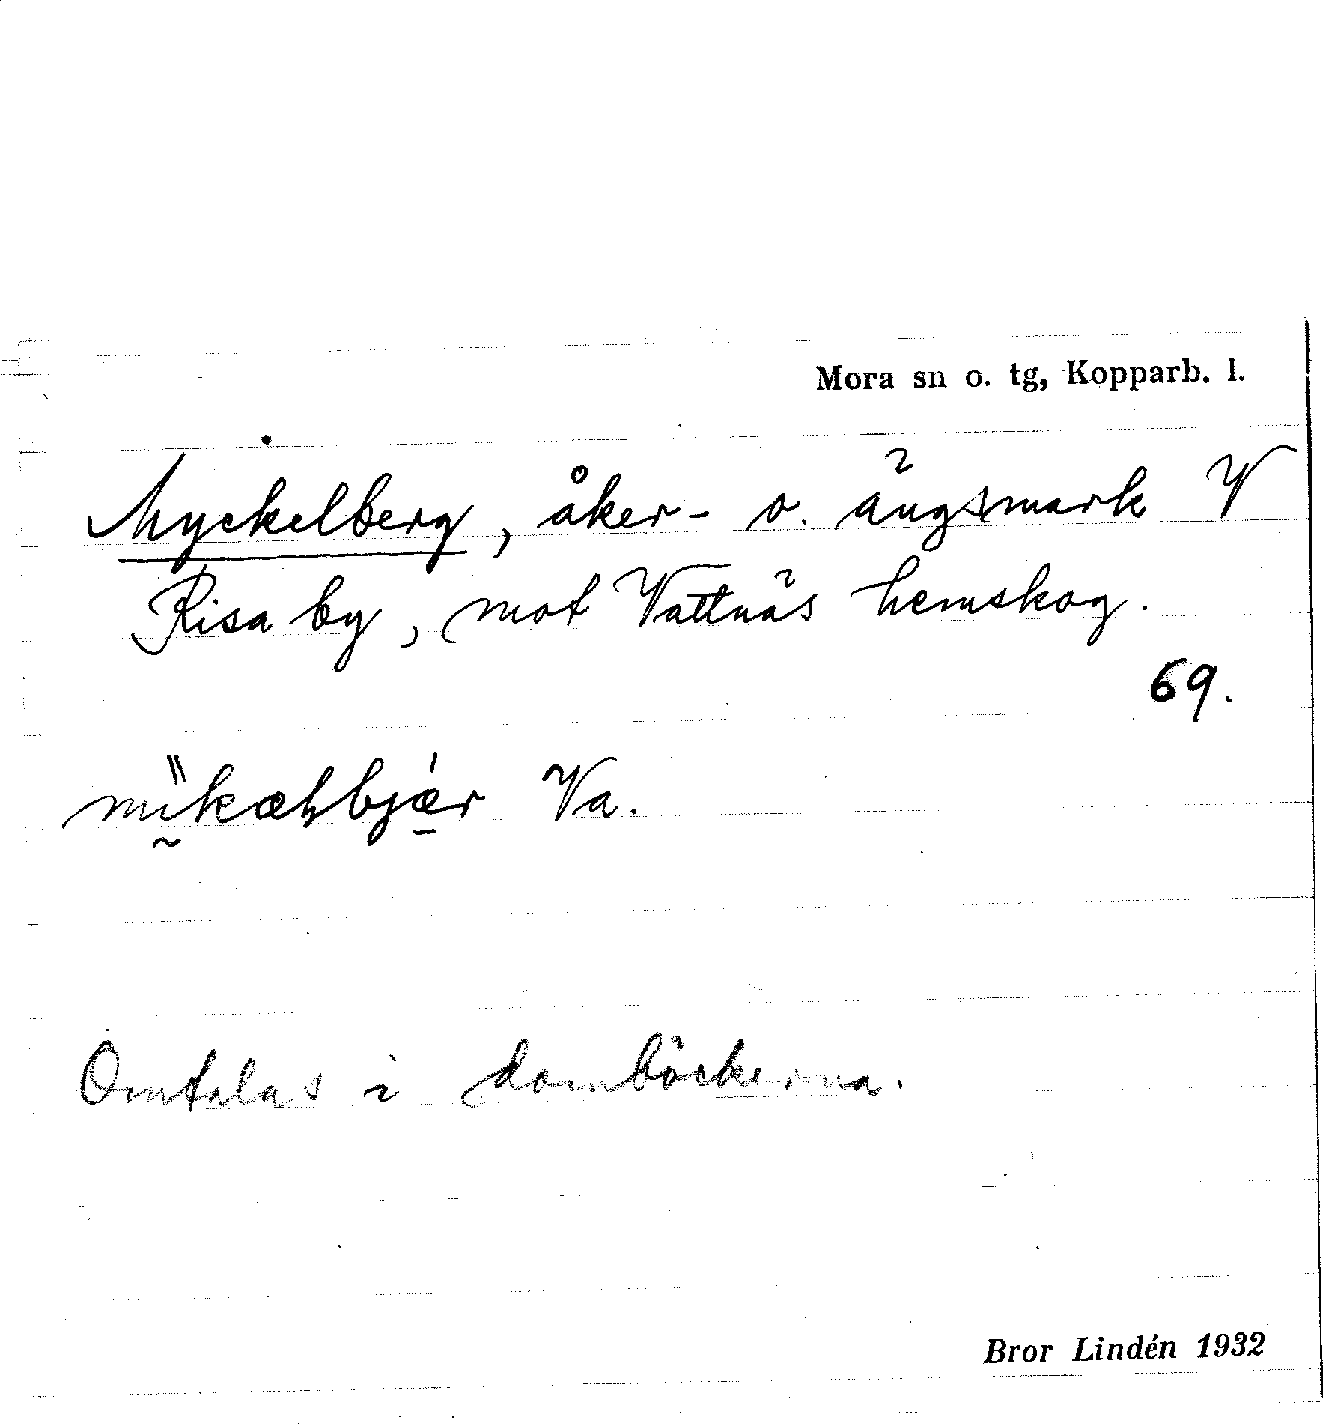 Mora sn o. tg, Kopparb. l.
Myckelberg, åker- o. ängsmark V
Risa by, mot Vattnäs hemskog.
69.
Va.
Omtalas i domböckerna.
Bror Lindén 1932